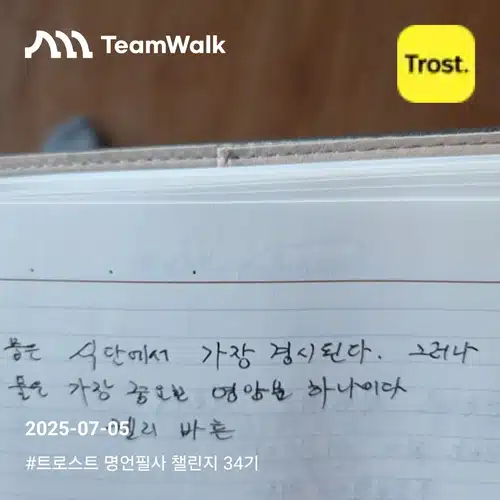 TeamWalk
Trost.
물은 식단에서 가장 경시된다. 그러나
물은 가장 중요한 영양분 하나이다
2025-07-05
켈리 바흔
#트로스트 명언필사 챌린지 34기